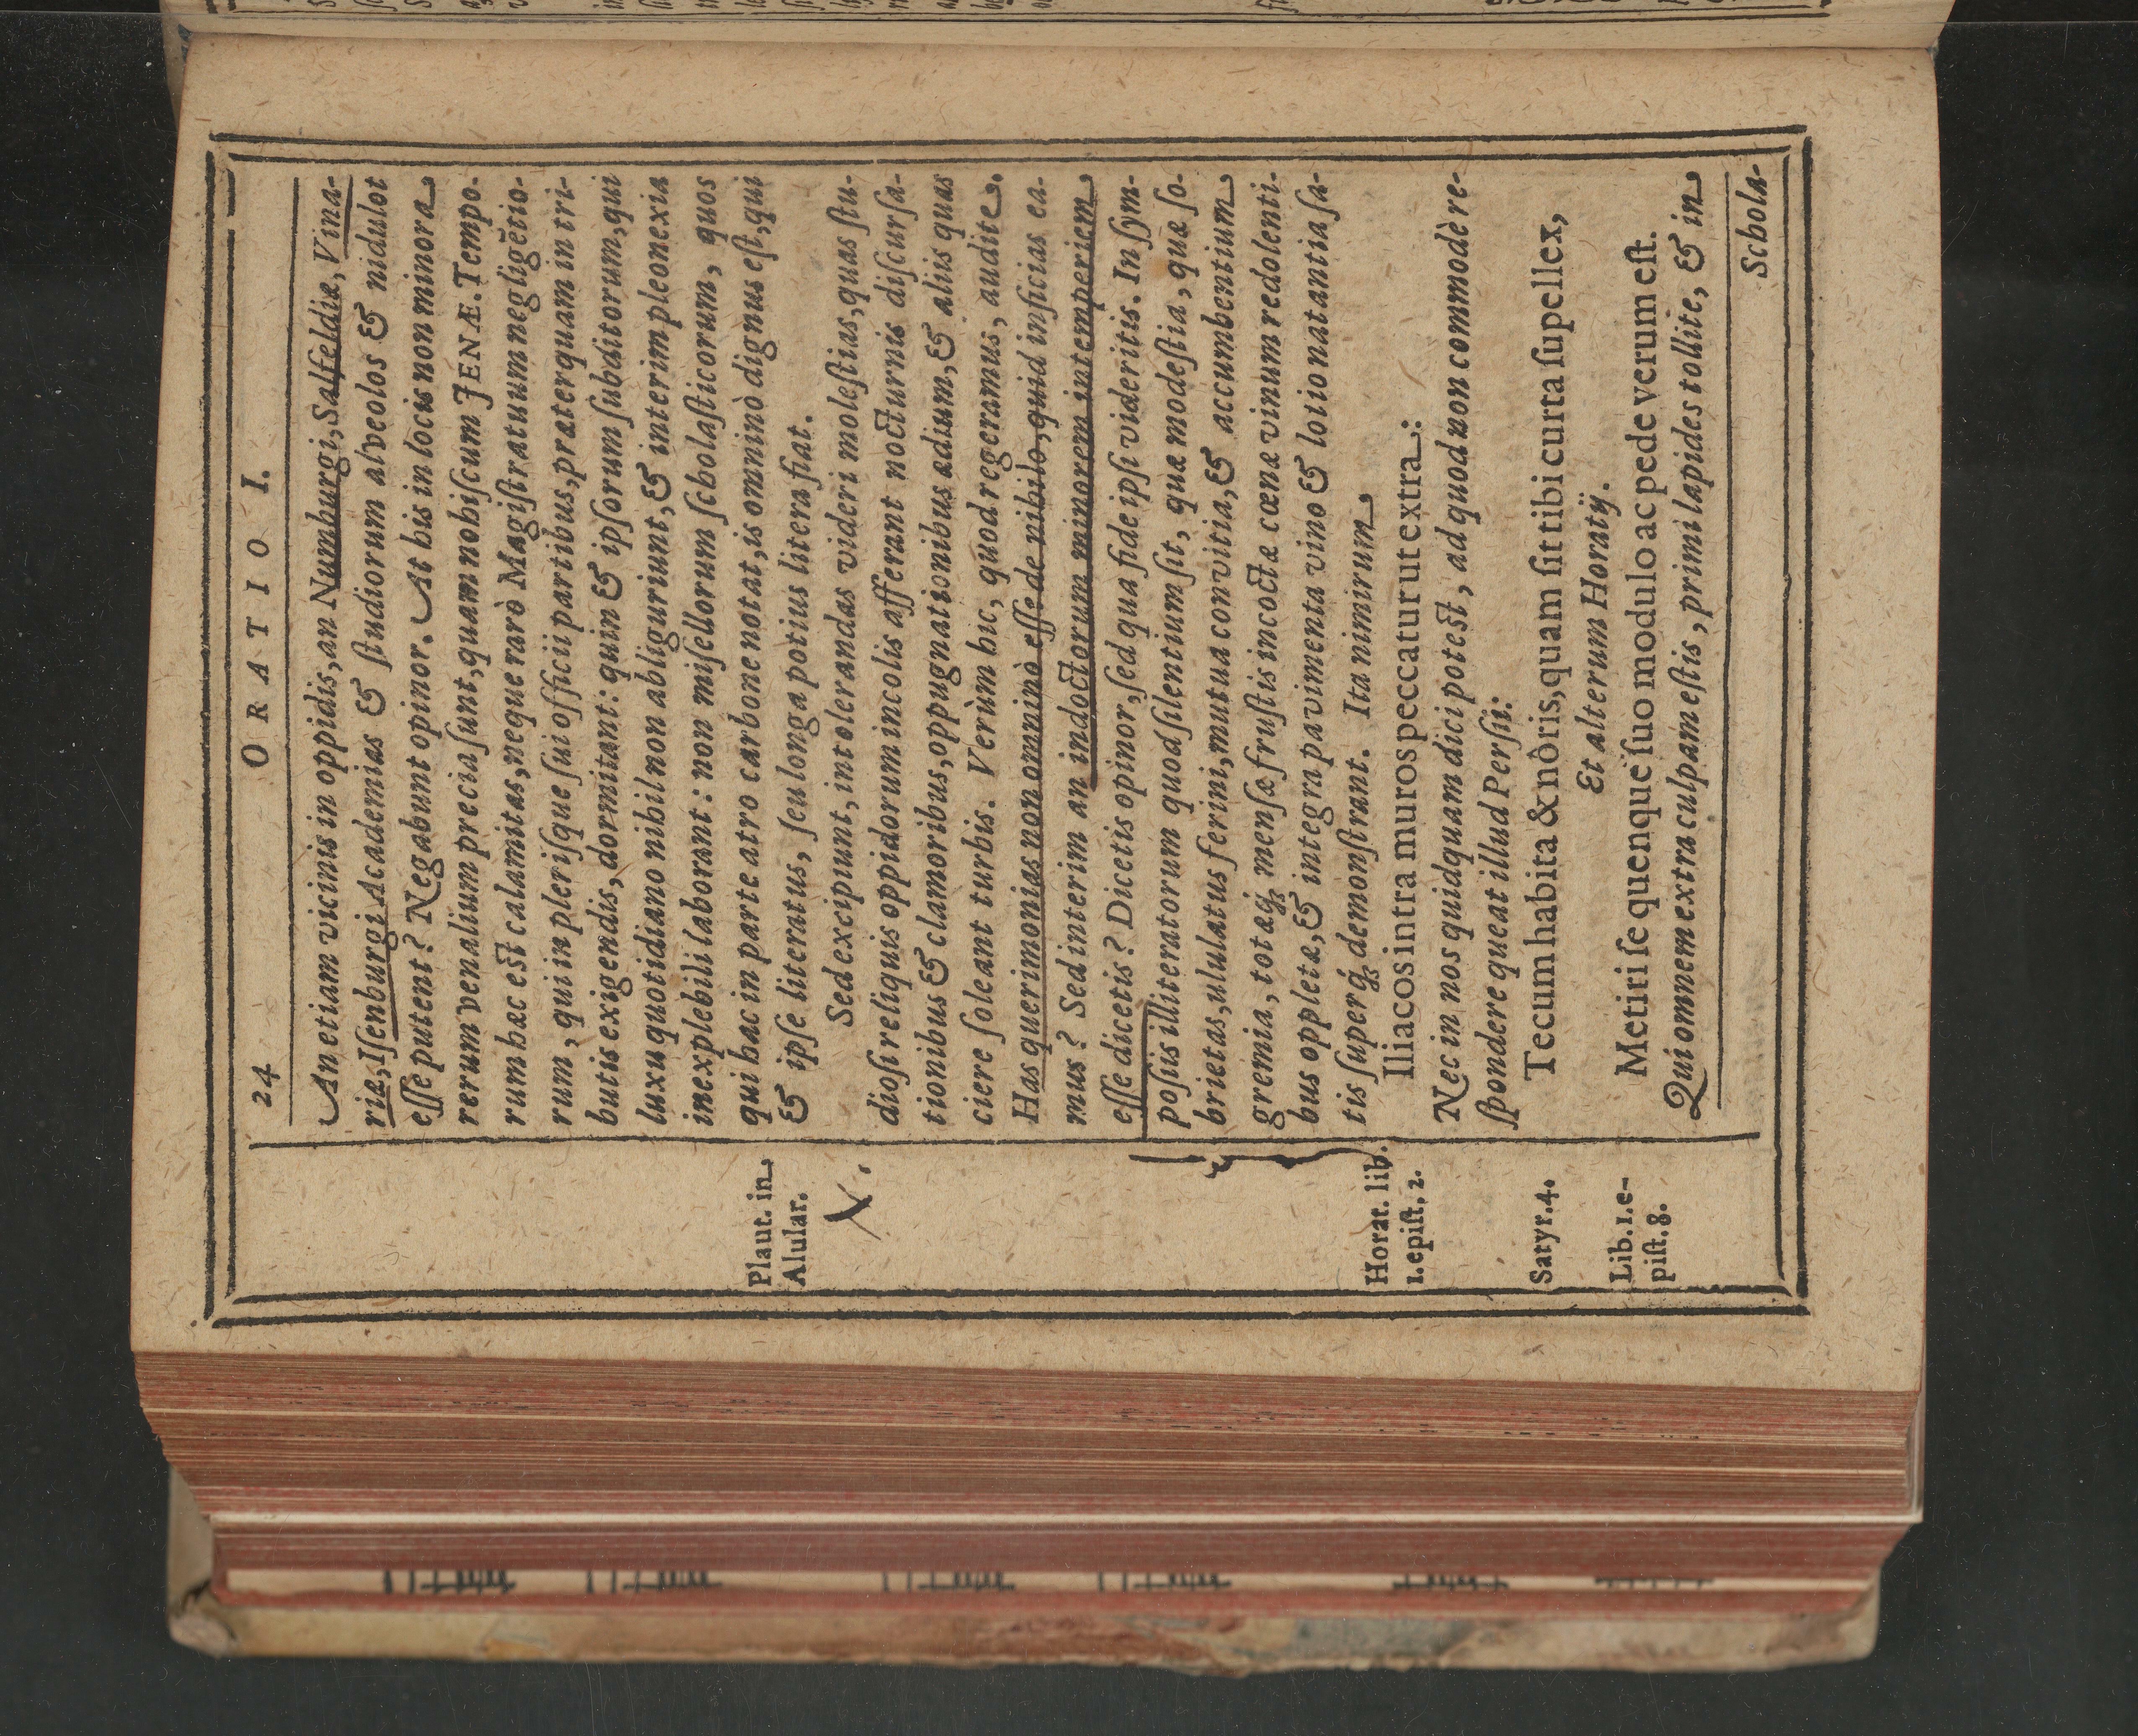 24 ORATIO I.
An etiam vicinis in oppidis, an Numburgi, Salfeldiæ, Vina-
riæ, Iſenburgi Academias & ſtudiorum alveolos & nidulos
eſſe putent? Negabunt opinor. At his in locis non minora
rerum venalium precia ſunt, quam nobiſcum JENÆ. Tempo-
rum hæc est calamitas, neque rarò Magiſtratuum negligẽtio-
rum, qui in pleriſque ſui officii partibus, præterquam in tri-
butis exigendis, dormitant: quin & ipſorum ſubditorum, qui
luxu quotidiano nihil non abliguriunt, & interim pleonexia
inexplebili laborant: non miſellorum ſcholaſticorum, quos
qui hac in parte atro carbone notat, is omninò dignus eſt, qui
& ipſe literatus, ſeu longa potius litera fiat.
Plaut. in
Alular.
Sed excipiunt, intolerandas videri moleſtias, quas ſtu-
dioſi reliquis oppidorum incolis afferant nocturnis diſcurſa-
tionibus & clamoribus, oppugnationibus ædium, & aliis quas
ciere ſoleant turbis. Verùm hic, quod regeramus, audite.
Has querimonias non omninò eſſe de nihilo, quid inficias ea-
mus? Sed interim an indoctorum minorem intemperiem
eſſe dicetis? Dicetis opinor, ſed qua fide ipſi videritis. In ſym-
poſiis illiteratorum quod ſilentium ſit, quæ modeſtia, quæ ſo-
brietas, ululatus ferini, mutua convitia, & accumbentium
gremia, totæq́ menſæ fruſtis incoctæ cœnæ vinum redolenti-
bus oppletæ, & integra pavimenta vino & lotio natantia ſa-
tis ſuperq́ demonſtrant. Ita nimirum
Iliacos intra muros peccatur ut extra:
Horat. lib.
1. epiſt. 2.
Nec in nos quidquam dici potest, ad quod non commodè re-
ſpondere queat illud Perſii:
Tecum habita & nôris, quam ſit tibi curta ſupellex,
Satyr. 4.
Et alterum Horatij.
Metiri ſe quenque ſuo modulo ac pede verum eſt.
Lib. 1. e-
piſt. 8.
Qui omnem extra culpam eſtis, primi lapides tollite, & in
Schola-